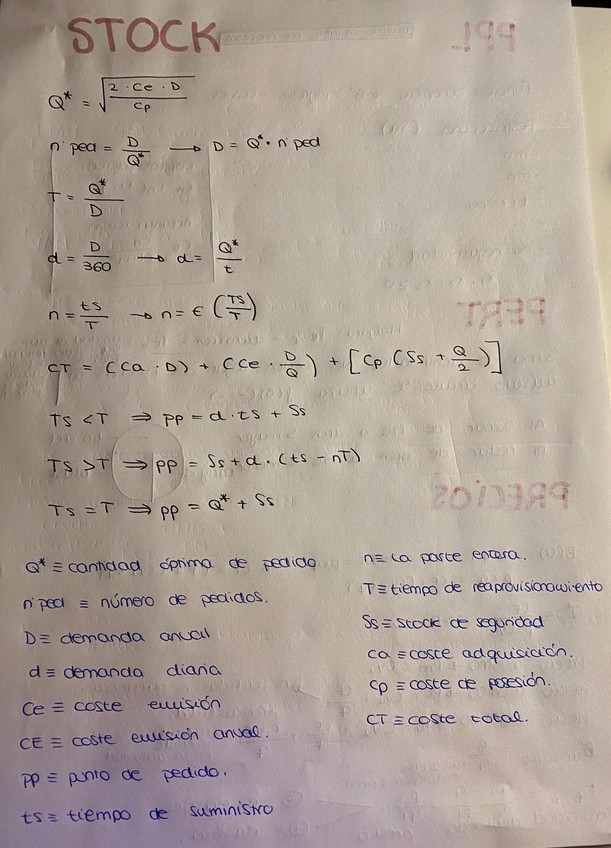 STOCK
Q* = √(2 · Ce · D / Cp)
n'ped = D/Q* → D = Q* · n'ped
T = Q*/D
d = D/360 → d = Q*/t
n = ts/T → n = € (TS/T)
CT = (Ca · D) + (Ce · D/Q) + [Cp (Ss + Q/2)]
TS < T ⇒ pp = d · ts + Ss
TS > T ⇒ pp = Ss + d · (ts - nT)
Ts = T ⇒ pp = Q* + Ss
Q* ≡ cantidad óptima de pedido
n'ped ≡ número de pedidos.
D ≡ demanda anual
d ≡ demanda diaria
Ce ≡ coste emisión
CE ≡ coste emisión anual.
PP ≡ punto de pedido.
ts ≡ tiempo de suministro
n ≡ la parte entera.
T ≡ tiempo de reaprovisionamiento
Ss ≡ stock de seguridad
ca ≡ coste adquisición.
Cp ≡ coste de posesión.
CT ≡ coste total.
PPL
PERT
PRECIOS